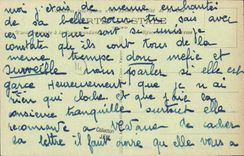 moi j'étais de meme enchantée
de sa belle soeur tu sais avec
ces gens qui sont si unis je
constate qu'ils sont tous de la
meme trempe donc mefie et
surveille parler si elle est
garce Heureusement que je n'ai
rien qui cloche et que j'ai la
consience tranquille surtout elle
de cacher
la lettre il faut dire qu'elle vous a